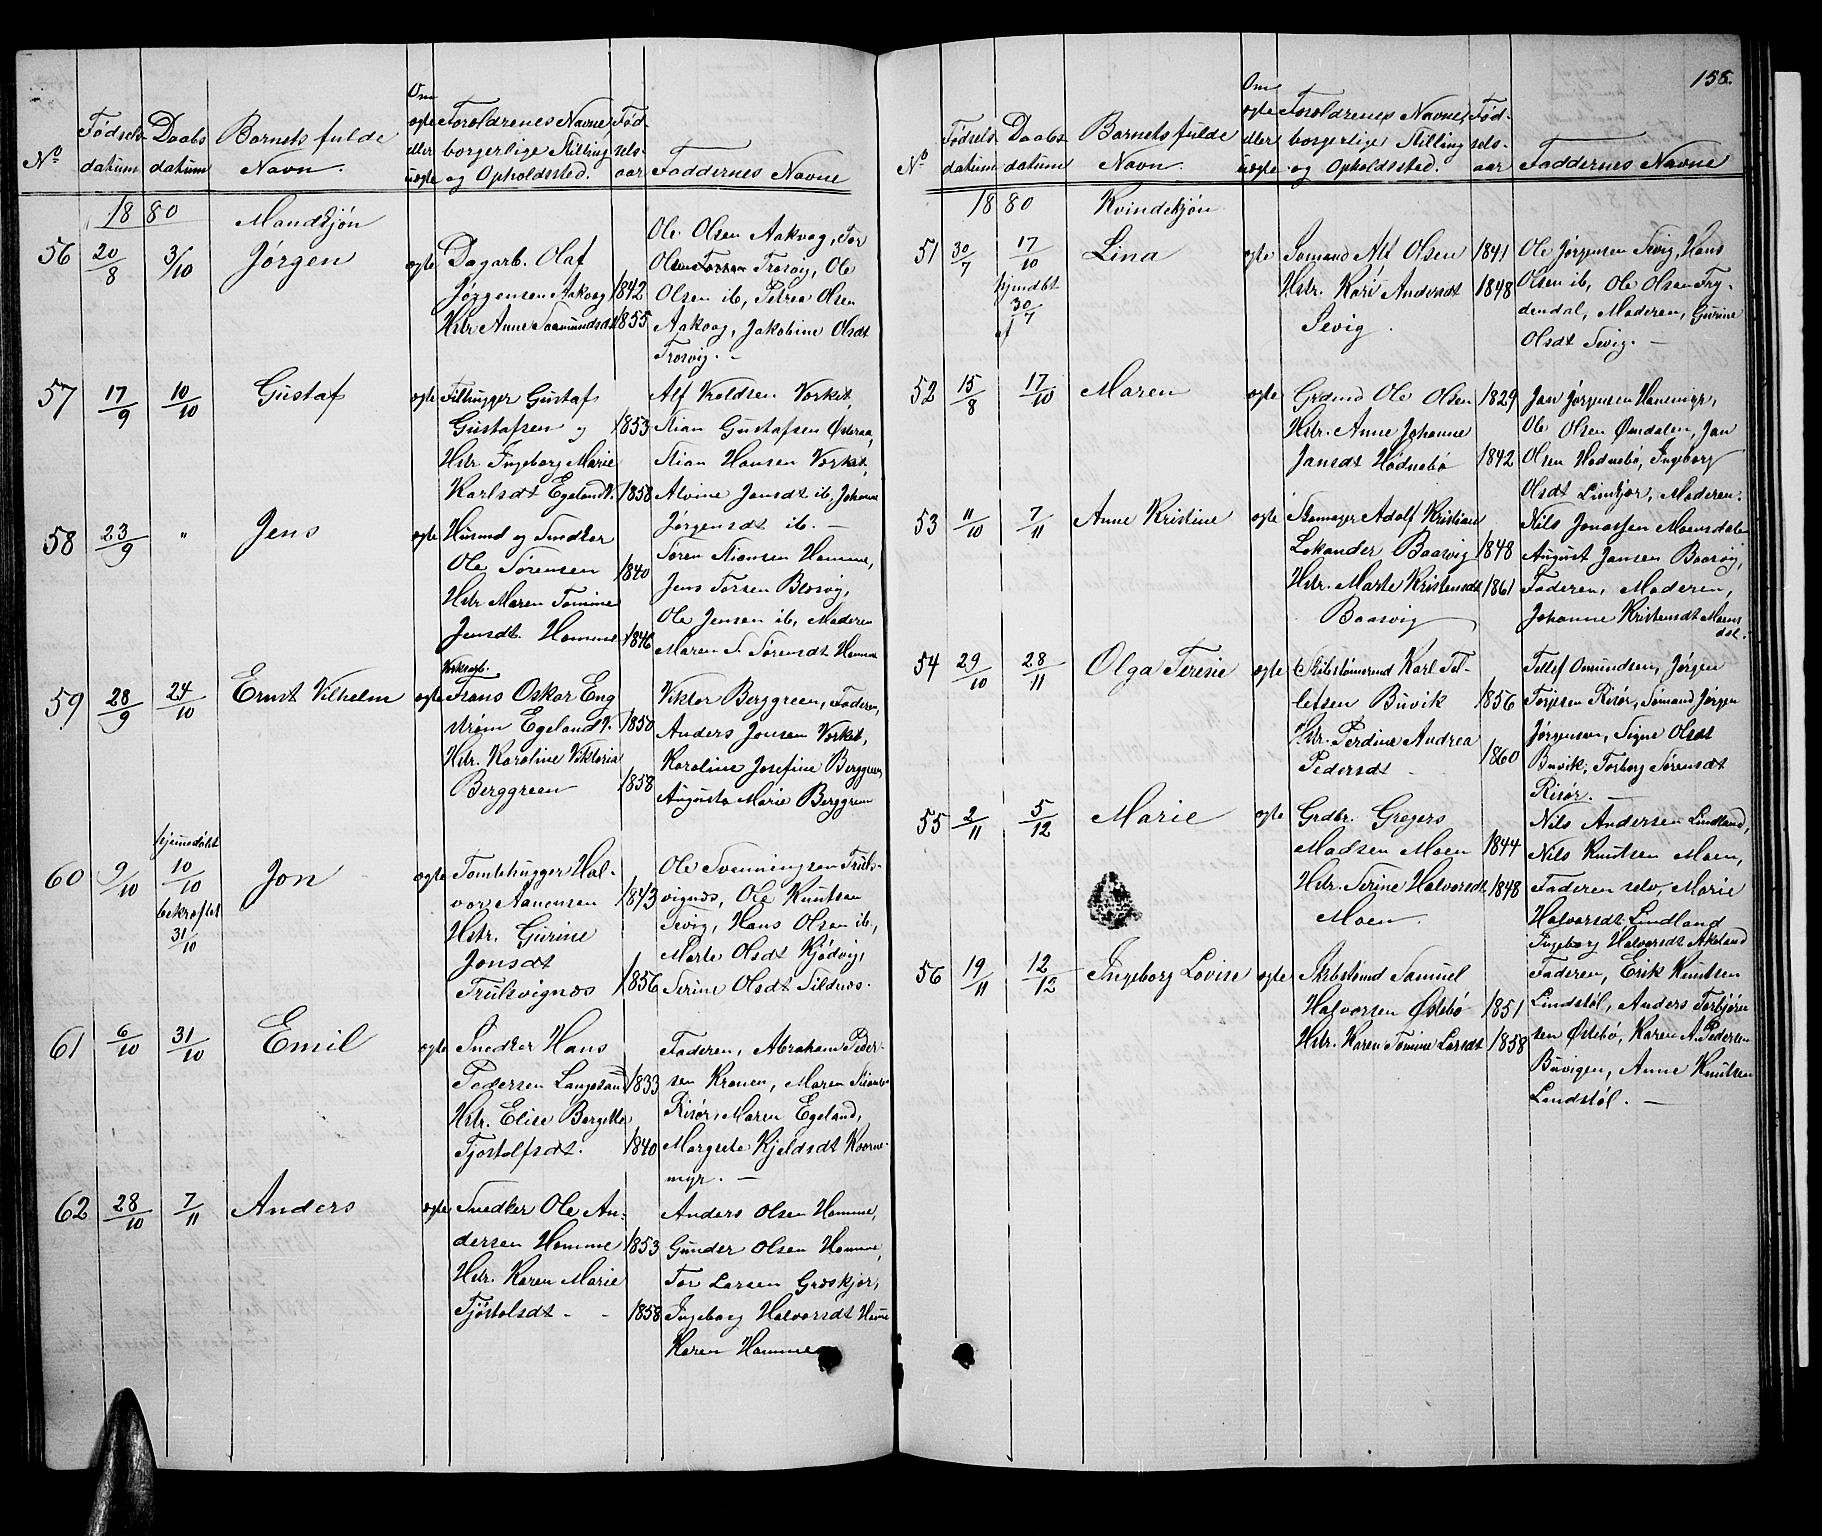 158.
No Fødsels- datum Daabs datum Barnets fulde Navn. Om ægte eller uægte Forældrenes Navne, borgerlige Stilling og Opholdssted. Føds- els- aar Faddernes Navne
1880 Mandkjøn
56 20/8 3/10 Jørgen ægte Dagarb. Olaf
Jørgensen Aakvag 1842
Hstr Anne Saamundsdt 1855
Ole Olsen Aakvag, Tor
Olsen Trosvig, Ole
Olsen ib, Petrea Olsen
Aakvag, Jakobine Olsdt
Trosvig. —
57 17/9 10/10 Gustaf ægte Filhugger Gustaf
Gustafsen og 1853
Hstr. Ingeborg Marie
Karlsdt Egelands V. 1858
Alf Kroldsen Værket,
Stian Gustafsen Østeraa,
Stian Hansen Værket,
Alvine Jansdt ib, Johanne
Jørgensdt ib. —
58 23/9 " Jens ægte Husmd og Snedker
Ole Sørensen 1840
Hstr Maren Tomine
Jensdt. Homme 1846
Søren Stiansen Homme,
Jens Torsen Blæsvig,
Ole Jensen ib, Moderen
Maren S. Sørensdt Homme
59 28/9 24/10 Ernst Vilhelm ægte Værksarb.
Frans Oskar Eng
strøm Egelands V. 1850
Hstr. Karoline Viktoria
Berggreen 1858
Viktor Berggreen, Faderen,
Anders Jonsen Værket,
Karoline Josefine Berggreen
Augusta Marie Berggreen
60 9/10 hjemmedøbt 10/10 bekræftet 31/10 Jon ægte Tomtehugger Hal-
vor Aanensen 1843
Hstr. Gurine
Jonsdt
Trulsvignæs 1856
Ole Svenningsen Truls-
vignæs, Ole Knutsen
Sevig, Hans Olsen ib.,
Marte Olsdt Kjødvig,
Serine Olsdt Sildnæs.
61 6/10 31/10 Emil ægte Snedker Hans
Pedersen Langsaas 1833
Hstr. Elise Bergitte
Tjostolfsdt. 1840
Faderen, Abraham Peder-
sen Kranen, Maren
Risør, Maren Egeland,
Margrete Kjeldsdt Kværne-
myr. —
62 28/10 7/11 Anders ægte Snedker Ole An-
dersen Homme 1853
Hstr. Karen Marie
Tjöstolsdt - - 1858
Anders Olsen Homme,
Gunder Olsen Homme,
Tor Larsen Græskjær,
Ingeborg Halvorsdt Homme
Karen Homme
No Fødsels- datum Daabs datum Barnets fulde Navn. Om ægte eller uægte Forældrenes Navne, borgerlige Stilling og Opholdssted. Føds- els- aar Faddernes Navne
1880 Kvindekjøn
51 30/7 17/10 hjemdbt 30/7 Lina ægte Sømand Alf Olsen 1841
Hstr. Kari Andersdt 1848
Sevig.
Ole Jørgensen Sevig, Hans
Olsen ib, Ole Olsen Fry-
dendal, Moderen, Gurine
Olsdt Sevig. —
52 15/8 17/10 Maren ægte Grdmd Ole Olsen 1829
Hstr. Anne Johanne
Jansdt Hødnebø 1842
Jan Jørgensen Hanemyr,
Ole Olsen Ømdalen, Jan
Olsen Hødnebø, Ingeborg
Olsdt Limkjær, Moderen.
53 11/10 7/11 Anne Kristine ægte Skomager Adolf Kristian
Lokander Baasvig 1848
Hstr. Marte Kristensdt 1861
Baasvig
Nils Jonassen Moensdalen
August Jansen Baasvig,
Faderen, Moderen,
Johanne Kristensdt Moens
dal.
54 29/10 28/11 Olga Teresie ægte Skibstømrmd Karl Tel-
lefsen Buvik 1856
Hstr. Perdine Andrea
Pedersdt - 1860
Tellef Omundsen, Jørgen
Torjesen Risør, Sømand Jørgen
Jørgensen, Signe Olsdt
Buvik, Torborg Sørensdt
Risør. —
55 2/11 5/12 Marie ægte Grdbr. Gregers
Madsen Moen 1844
Hstr. Serine Halvorsdt 1848
Moen.
Nils Andersen Lindland,
Nils Knutsen Moen,
Faderen selv, Marie
Halvorsdt Lindland
Ingeborg Halvorsdt Akeland
56 19/11 12/12 Ingeborg Lovise ægte Skibstømd Samuel
Halvorsen Østebø 1851
Hstr. Karen Tomine Larsdt 1858
Faderen, Erik Knutsen
Lindstøl, Anders Torbjørn
sen Østebø, Karen A. Pedersen
Buvigen, Anne Knutsen
Lindstøl. —